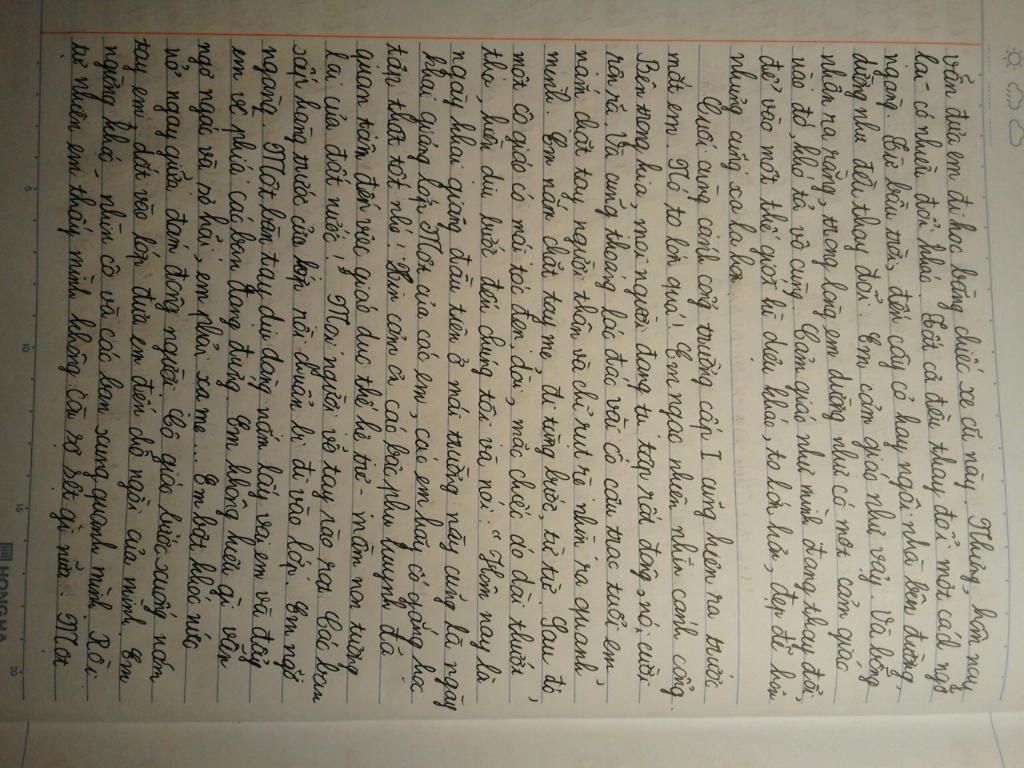 vẫn đưa em đi học bằng chiếc xe cũ này. Nhưng, hôm nay
lạ - có nhiều đổi khác. Tất cả đều thay đổi một cách ngỡ
ngàng. Từ bầu trời, đến cây cỏ hay ngôi nhà bên đường,
dường như đều thay đổi. Em cảm giác như vậy. Và bỗng
nhận ra rằng, trong lòng em dường như có một cảm giác
nào đó, khó tả vô cùng. Cảm giác như mình đang thay đổi,
để vào một thế giới kì diệu khác, to lớn hơn, đẹp đẽ hơn
nhưng cũng xa lạ hơn.
Cuối cùng cánh cổng trường cấp I cũng hiện ra trước
mắt em. Nó to lớn quá! Em ngạc nhiên nhìn cánh cổng.
Bên trong kia, mọi người đang tụ tập rất đông, nói cười
rôm rả. Và cũng thoáng lác đác vài cô cậu trạc tuổi em,
nắm chặt tay người thân và chỉ rụt rè nhìn ra quanh
mình. Em nắm chặt tay mẹ, đi từng bước, từ từ. Sau đó
một cô giáo có mái tóc đen, dài, mặc chiếc áo dài thướt
tha, hiền dịu bước đến chúng tôi và nói: "Hôm nay là
ngày khai giảng đầu tiên ở mái trường này cũng là ngày
khai giảng lớp Một của các em, các em hãy cố gắng học
tập thật tốt nhé! Xin cảm ơn các bậc phụ huynh đã
quan tâm đến việc giáo dục thế hệ trẻ - mầm non tương
lai của đất nước!" Mọi người vỗ tay rào rạt. Các bạn
xếp hàng trước cửa lớp rồi chuẩn bị đi vào lớp. Em ngỡ
ngàng. Một bàn tay dịu dàng nắm lấy vai em và đẩy
em về phía các bạn đang đứng. Em không hiểu gì vẫn
ngơ ngác và sợ hãi, em phải xa mẹ... Em bật khóc nức
nở ngay giữa đám đông người. Cô giáo bước xuống nắm
tay em dắt vào lớp, đưa em đến chỗ ngồi của mình. Em
ngừng khóc, nhìn cô và các bạn xung quanh mình. Rồi
tự nhiên em thấy mình không còn sợ sệt gì nữa. Một
5
10
15
20
HONG HA